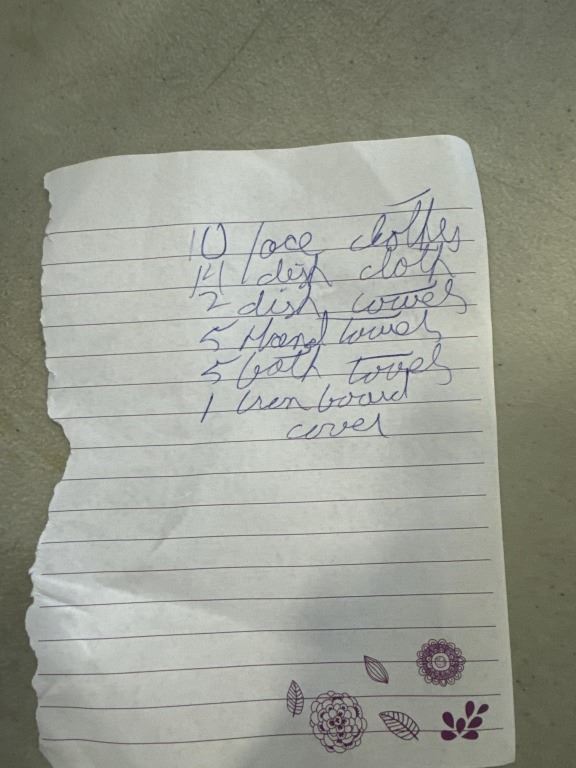 10 face clothes
14 dish cloth
2 dish towels
5 Hand towels
5 bath towels
1 Iron board
cover